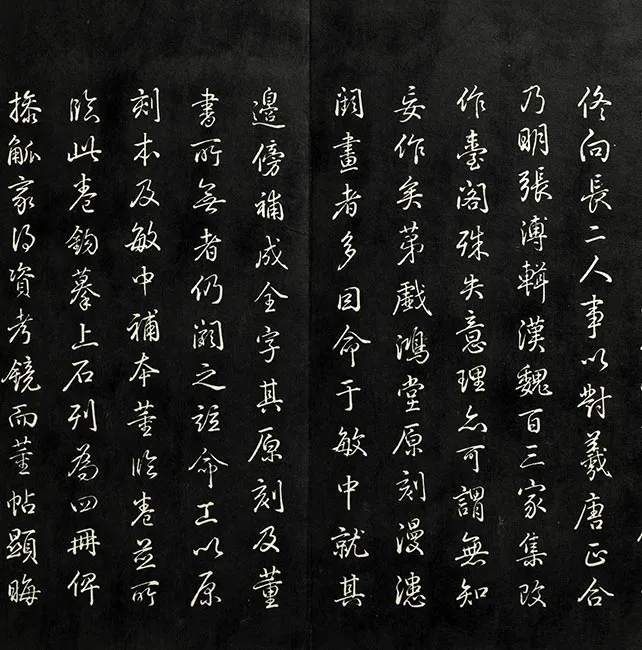 佟向長二人事以對羲唐正合
乃明張溥輯漢魏百三家集改
作臺閣殊失意理亦可謂無知
妄作矣第戲鴻堂原刻漫漶
闕畫者多因命于敏中就其
邊傍補成全字其原刻及董
書所無者仍闕之命工以原
刻本及敏中補本董臨卷並所
臨此卷鈎摹上石列為四冊俾
操觚家得資考鏡而董帖顯晦